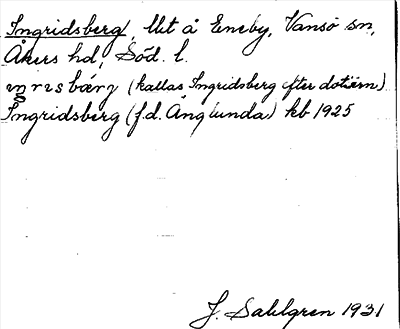 Ingridsberg, lht å Eneby, Vansö sn,
Åkers hd, Söd. l.
iŋrɪsbærj (kallas Ingridsberg efter dottern)
Ingridsberg (f.d. Änglunda) kb 1925
J. Sahlgren 1931